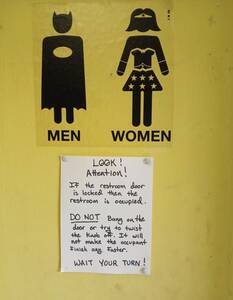 MEN WOMEN
LOOK!
Attention!
IF the restroom door
is locked then the
restroom is occupied.
DO NOT Bang on the
door or try to twist
the knob off. It will
not make the occupant
finish any faster.
WAIT YOUR TURN!